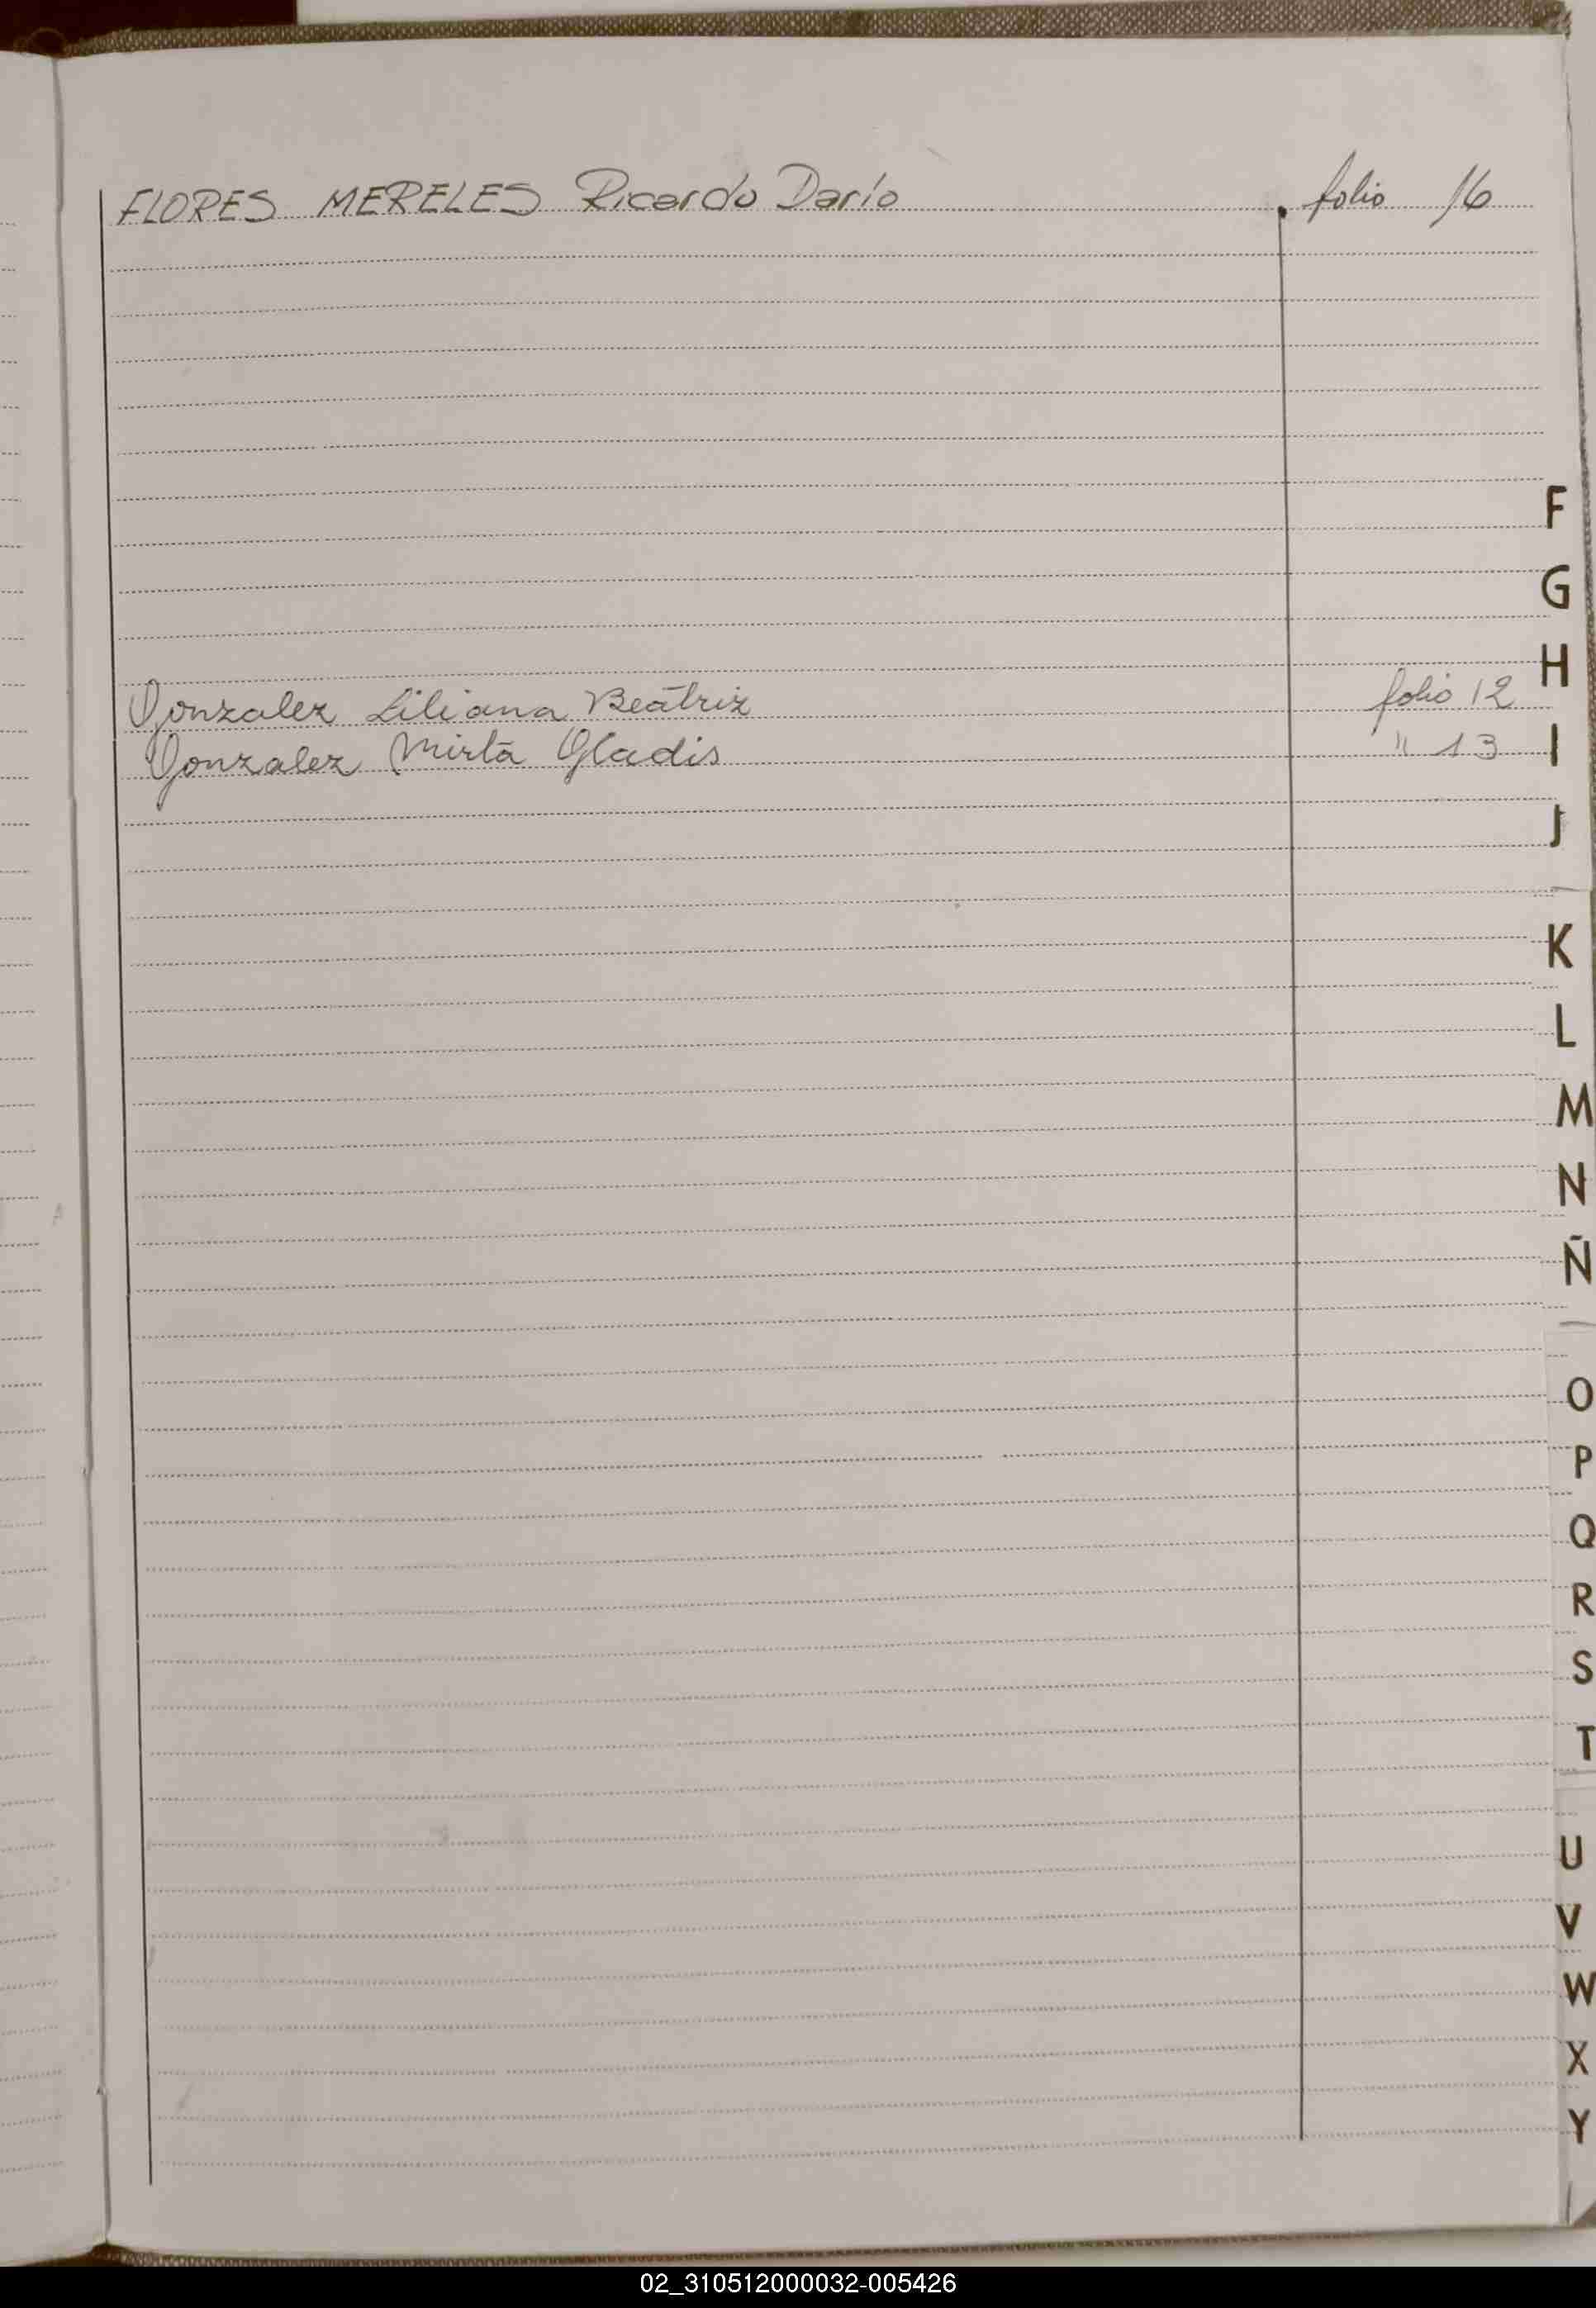 FLORES MERELES Ricardo Darío folio 16
Gonzalez Liliana Beatriz folio 12
Gonzalez Mirta Gladis " 13
F
G
H
I
J
K
L
M
N
Ñ
O
P
Q
R
S
T
U
V
W
X
Y
02_310512000032-005426